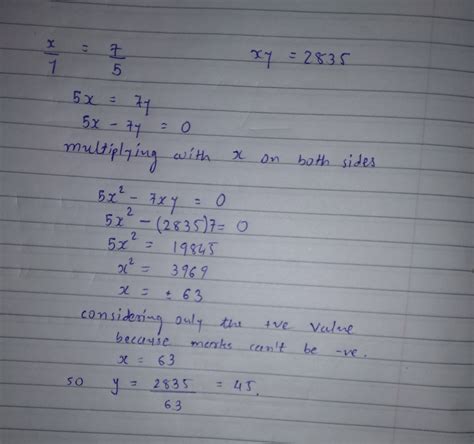 x/1 = 7/5 xy = 2835
5x = 7y
5x - 7y = 0
multiplying with x on both sides
5x² - 7xy = 0
5x² - (2835)7 = 0
5x² = 19845
x² = 3969
x = ± 63
considering only the +ve value
because marks can't be -ve.
x = 63
so y = 2835/63 = 45.